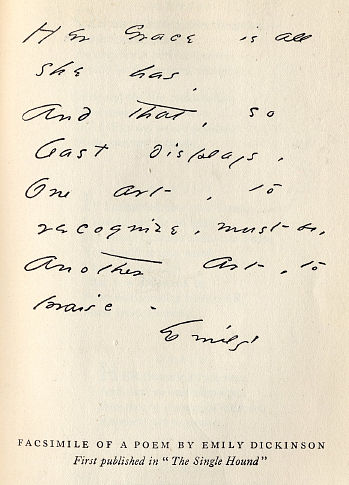 Her Grace is all
she has,
And that, so
least displays,
One Art, to
recognize, must be,
Another Art, to
praise -
Emily
FACSIMILE OF A POEM BY EMILY DICKINSON
First published in "The Single Hound"